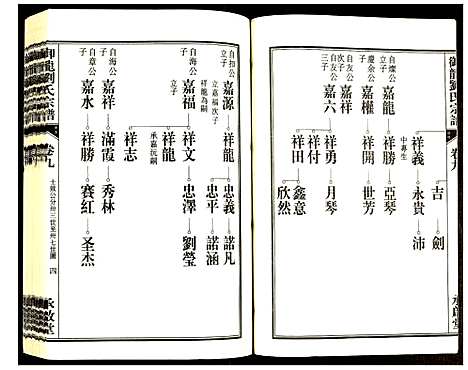 御龍劉氏宗譜
卷九
承啟堂
吉
劍
祥義
中專生
永貴
沛
自燦公
立子
嘉龍
祥勝
亞琴
慶余公
三子
嘉權
祥開
世芳
自友公
次子
祥勇
月琴
自友公
三子
嘉六
祥付
鑫意
祥田
欣然
自扣公
立子
嘉源
祥龍
忠義
諾凡
立嘉福次子
祥龍為嗣
忠平
諾涵
自海公
立子
嘉福
祥文
忠澤
劉瑩
祥龍
承嘉沅嗣
祥志
自海公
嘉祥
滿霞
秀林
自章公
嘉水
祥勝
賽紅
圣杰
御龍劉氏宗譜
卷九
十致公分卅三世至卅七世圖
四
承啟堂